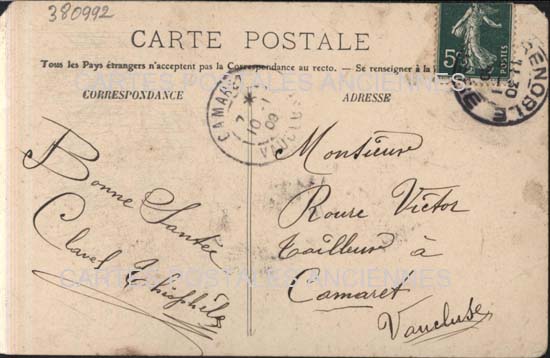 380992
CARTE POSTALE
Tous les Pays étrangers n'acceptent pas la Correspondance au recto. — Se renseigner à la
CARTES POSTALES ANCIENNES
CORRESPONDANCE
ADRESSE
5
POSTES
CAMARET
VAUCLUSE
7
10 -1
09
GRENOBLE
11 30
ISERE
Bonne Santée
Clavel Théophile
Monsieur
Roure Victor
Tailleur à
Camaret
Vaucluse
CARTES POSTALES ANCIENNES